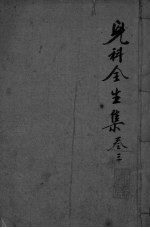 児科全生集 卷三